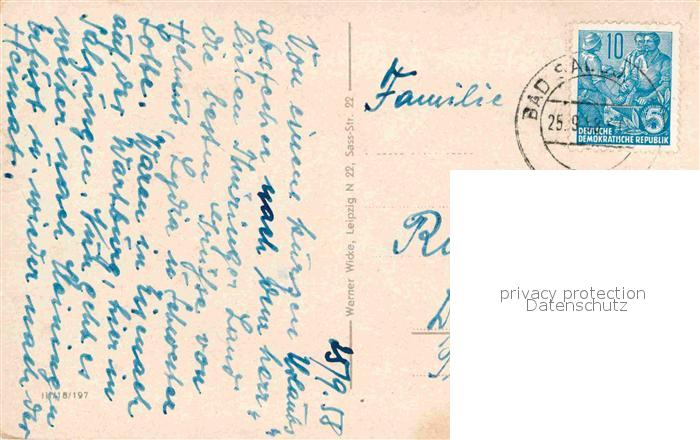 25/9.58
Von einem kurzen Urlaubs
abstecher nach dem herr-
lichen Thüringer Land
die besten Grüße von
Helmut, Lydia u. Schwester
Lotte. Waren in Eisenach
auf der Wartburg, hier in
Salzungen. Jetzt geht es
weiter nach Meiningen
Erfurt u. wieder nach der
Heimat.
III/18/197
Werner Wicke, Leipzig N 22, Sass-Str. 22
Familie
BAD SALZU
25.9.58
10
5
DEUTSCHE
DEMOKRATISCHE REPUBLIK
privacy protection
Datenschutz